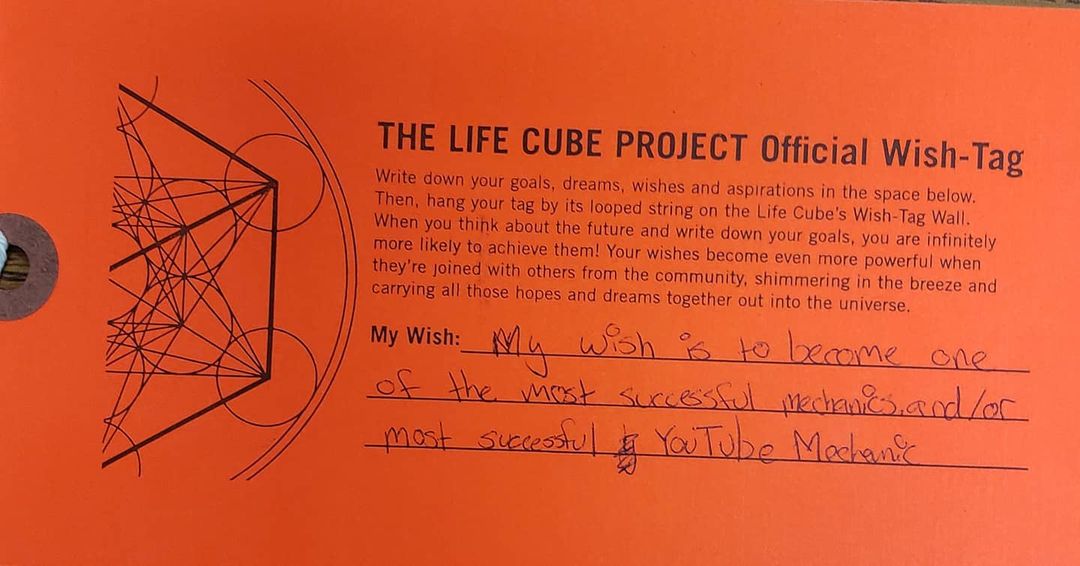 THE LIFE CUBE PROJECT Official Wish-Tag
Write down your goals, dreams, wishes and aspirations in the space below.
Then, hang your tag by its looped string on the Life Cube's Wish-Tag Wall.
When you think about the future and write down your goals, you are infinitely
more likely to achieve them! Your wishes become even more powerful when
they're joined with others from the community, shimmering in the breeze and
carrying all those hopes and dreams together out into the universe.
My Wish: My wish is to become one
of the most successful mechanics.and/or
most successful YouTube Mechanic